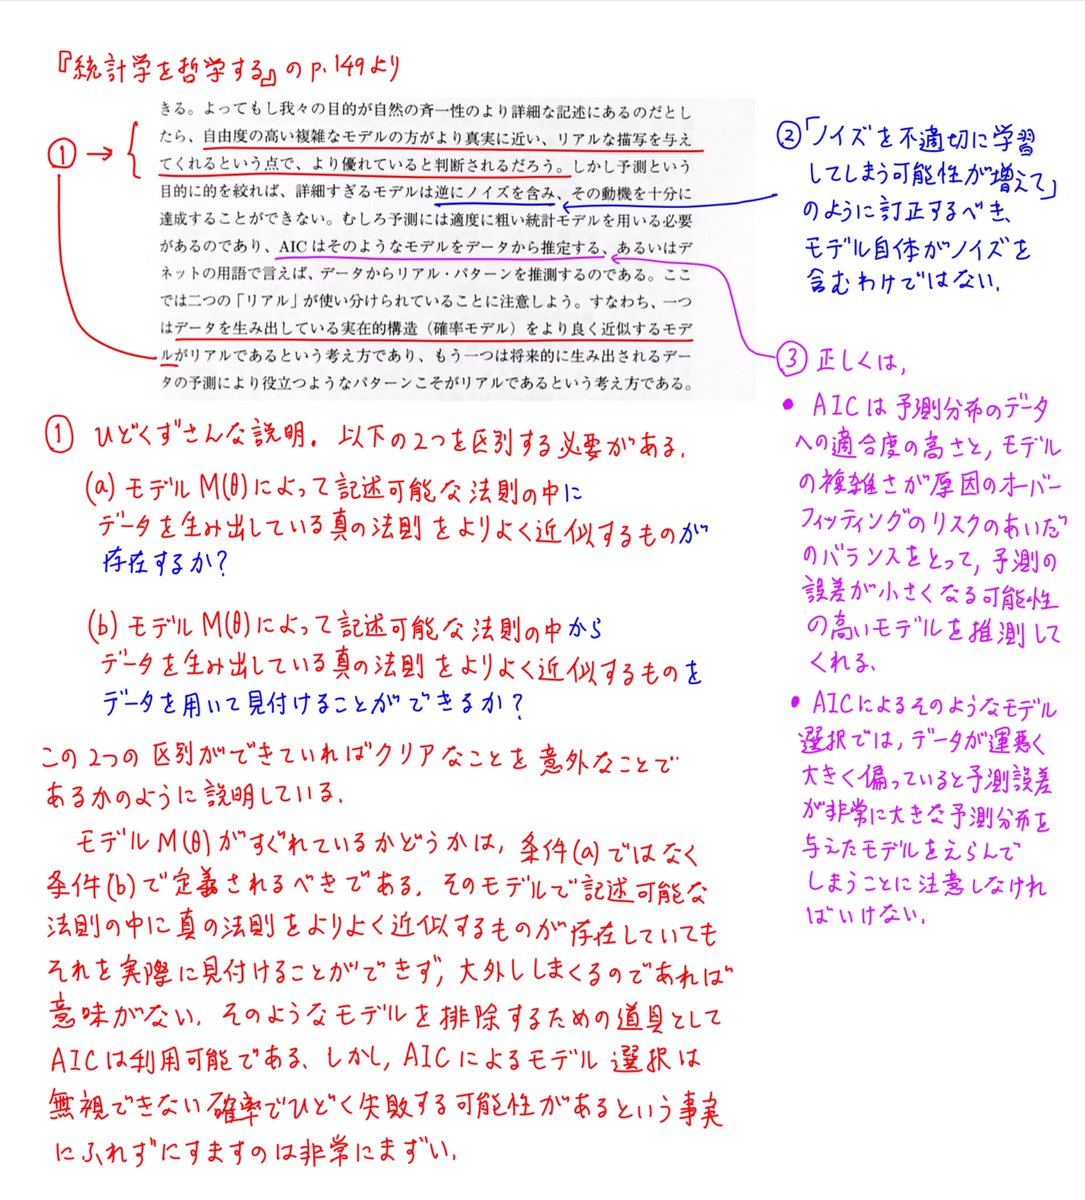 『統計学を哲学する』のp.149より
きる。よってもし我々の目的が自然の斉一性のより詳細な記述にあるのだとし
たら、自由度の高い複雑なモデルの方がより真実に近い、リアルな描写を与え
てくれるという点で、より優れていると判断されるだろう。しかし予測という
目的に的を絞れば、詳細すぎるモデルは逆にノイズを含み、その動機を十分に
達成することができない。むしろ予測には適度に粗い統計モデルを用いる必要
があるのであり、AICはそのようなモデルをデータから推定する、あるいはデ
ネットの用語で言えば、データからリアル・パターンを推測するのである。ここ
では二つの「リアル」が使い分けられていることに注意しよう。すなわち、一つ
はデータを生み出している実在的構造（確率モデル）をより良く近似するモデ
ルがリアルであるという考え方であり、もう一つは将来的に生み出されるデー
タの予測により役立つようなパターンこそがリアルであるという考え方である。
①→
②「ノイズを不適切に学習
してしまう可能性が増えて」
のように訂正するべき、
モデル自体がノイズを
含むわけではない.
③ 正しくは,
• AICは予測分布のデータ
への適合度の高さと,モデル
の複雑さが原因のオーバー
フィッティングのリスクのあいだ
のバランスをとって,予測の
誤差が小さくなる可能性
の高いモデルを推測して
くれる、
• AICによるそのようなモデル
選択では,データが運悪く
大きく偏っていると予測誤差
が非常に大きな予測分布を
与えたモデルをえらんで
しまうことに注意しなけれ
ばいけない.
① ひどくずさんな説明. 以下の2つを区別する必要がある.
(a) モデルM(θ)によって記述可能な法則の中に
データを生み出している真の法則をよりよく近似するものが
存在するか?
(b) モデルM(θ)によって記述可能な法則の中から
データを生み出している真の法則をよりよく近似するものを
データを用いて見付けることができるか?
この2つの区別ができていればクリアなことを意外なことで
あるかのように説明している.
モデルM(θ)がすぐれているかどうかは,条件(a)ではなく
条件(b)で定義されるべきである. そのモデルで記述可能な
法則の中に真の法則をよりよく近似するものが存在していても
それを実際に見付けることができず,大外ししまくるのであれば
意味がない. そのようなモデルを排除するための道具として
AICは利用可能である、しかし,AICによるモデル選択は
無視できない確率でひどく失敗する可能性があるという事実
にふれずにすますのは非常にまずい.